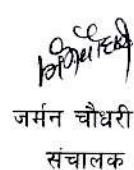 जर्मन चौधरी
संचालक